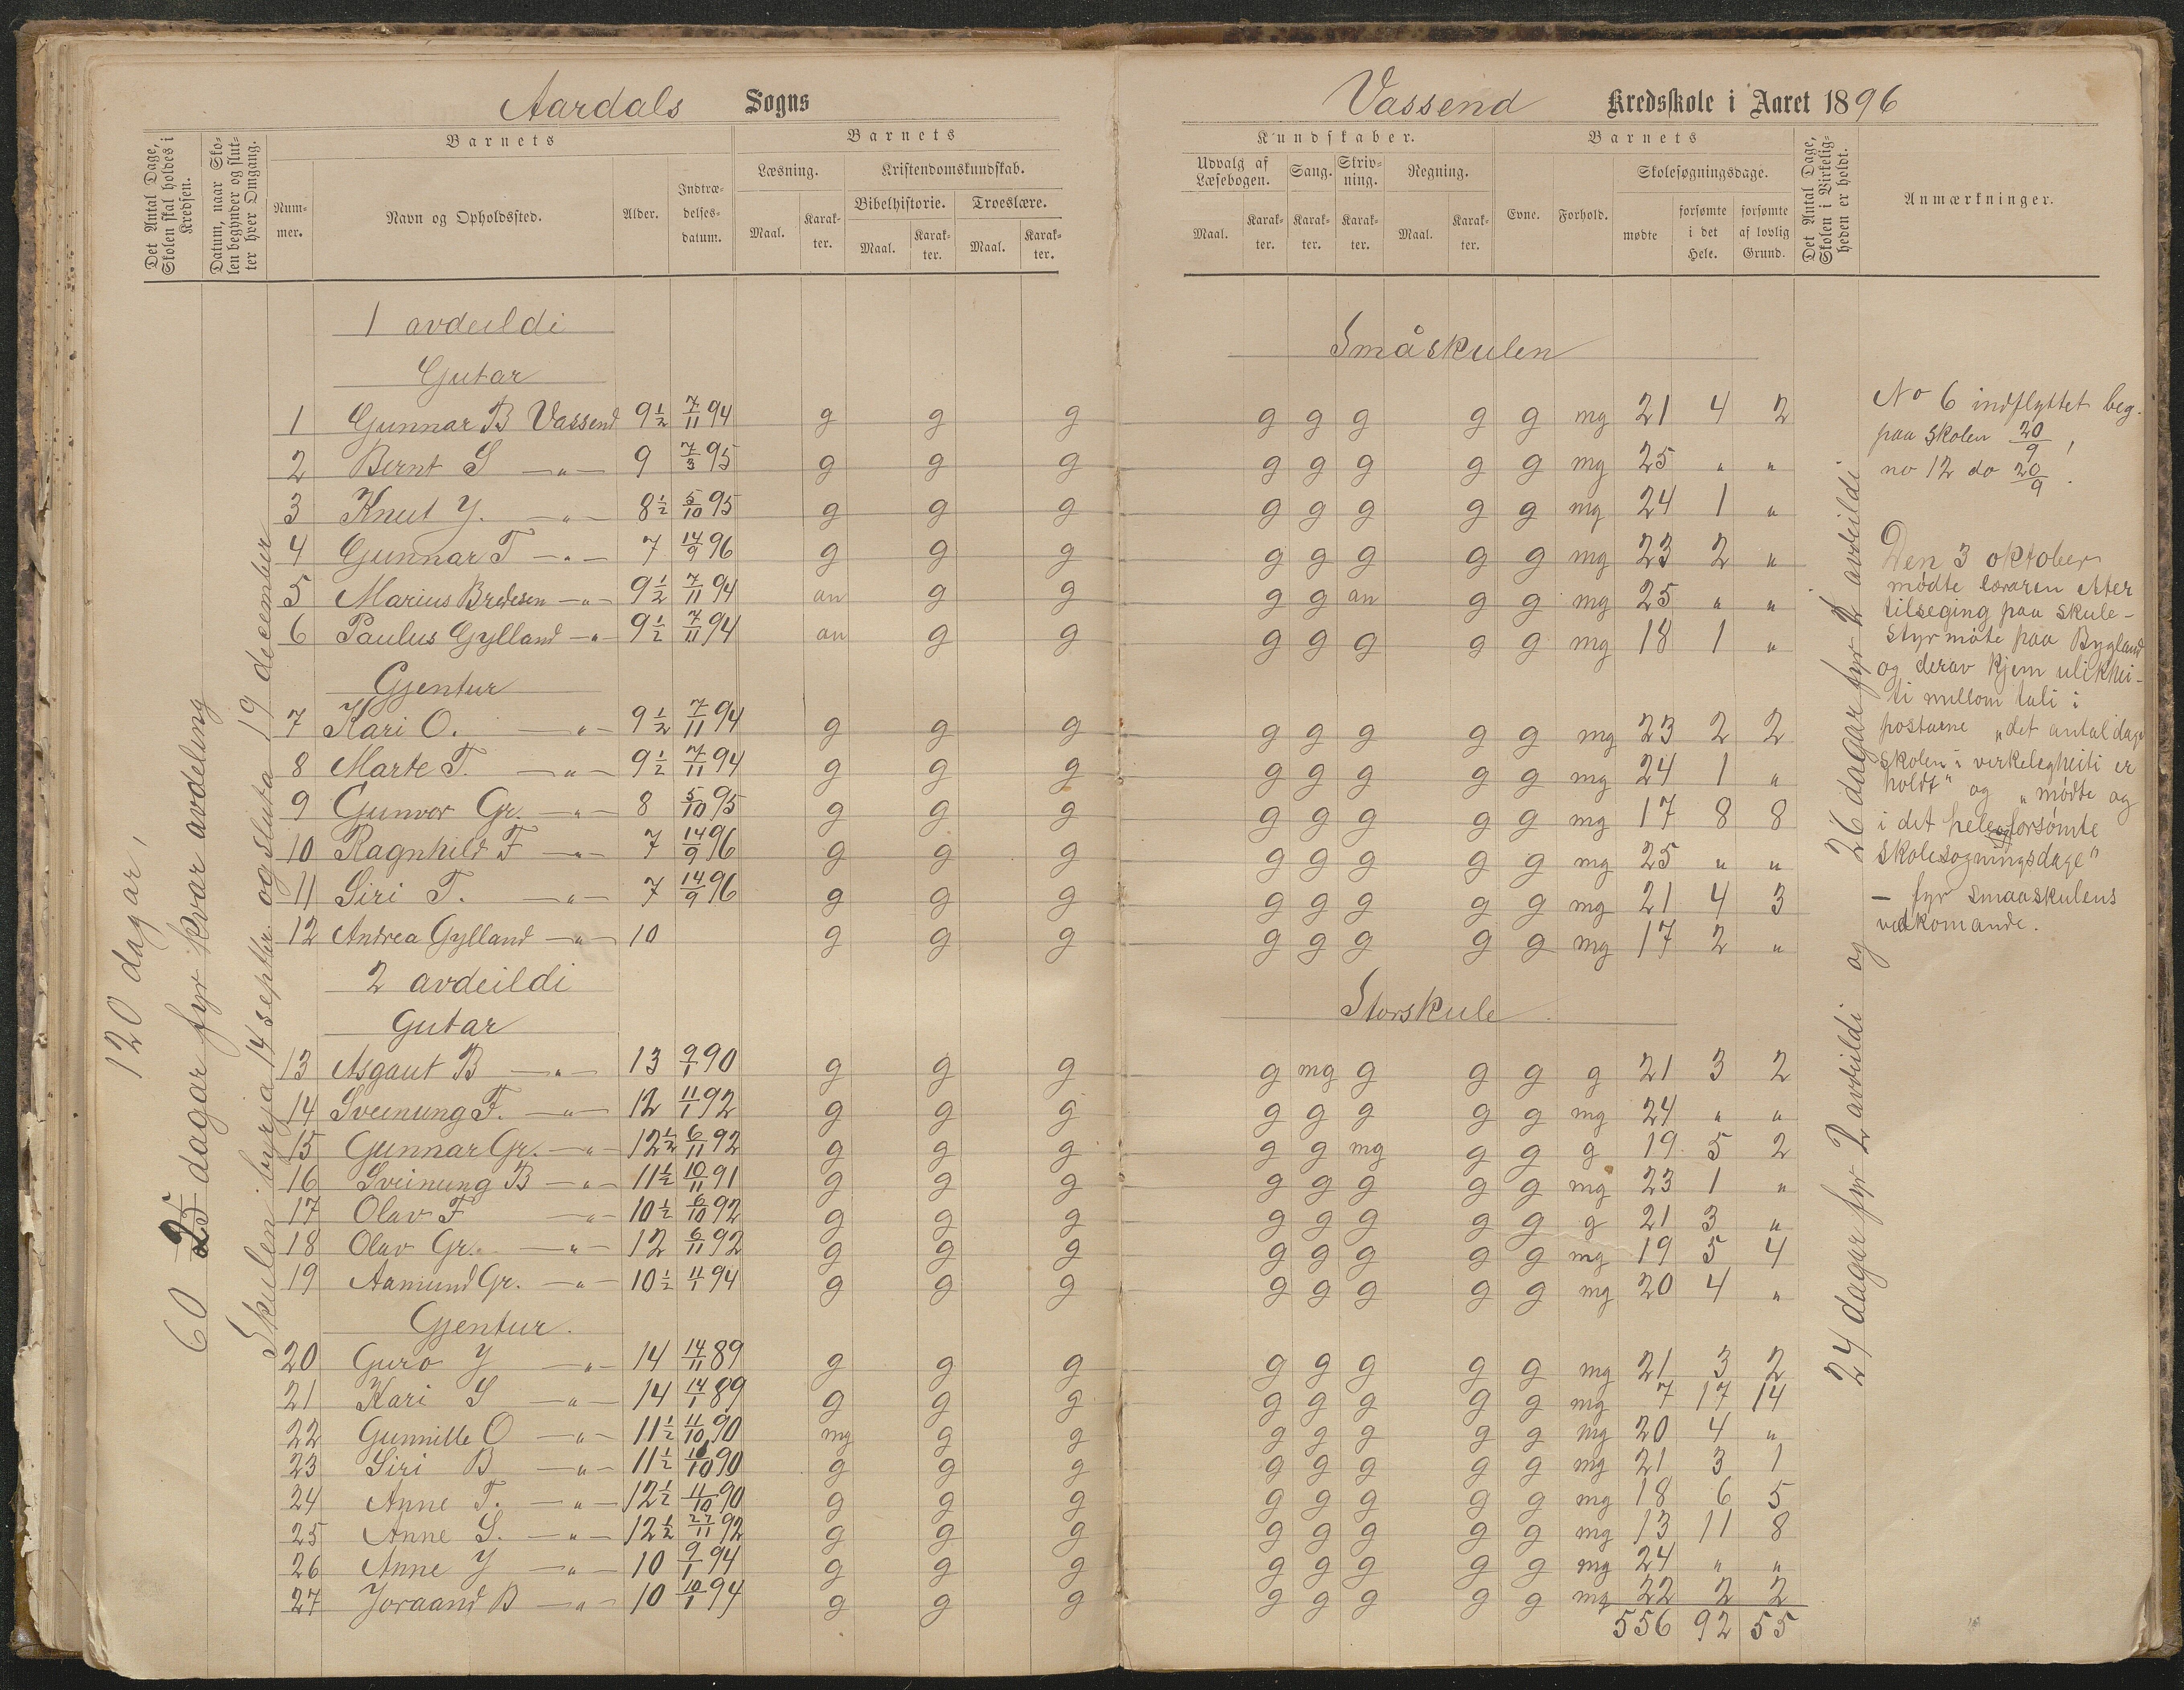 Aardals Sogns
Vassend Kredsskole i Aaret 1896
Det Antal Dage, Skolen skal holdes i Kredsen.
Datum, naar Skolen begynder og slutter hver Omgang.
Barnets
Nummer.
Navn og Opholdssted.
Alder.
Indtrædelsesdatum.
Barnets
Læsning.
Maal.
Karakter.
Kristendomskundskab.
Bibelhistorie.
Maal.
Karakter.
Troeslære.
Maal.
Karakter.
Kundskaber.
Udvalg af Læsebogen.
Maal.
Karakter.
Sang.
Karakter.
Skrivning.
Karakter.
Regning.
Maal.
Karakter.
Barnets
Evne.
Forhold.
Skolesøgningsdage.
mødte
forsømte i det Hele.
forsømte af lovlig Grund.
Det Antal Dage, Skolen i Virkeligheden er holdt.
Anmærkninger.
120 dagar,
60 25 dagar fyr kvar avdeling
Skulen byrja 14 septbr. og sluta 19 december
1 avdeildi Småskulen
Gutar
1 Gunnar B Vassend 9 1/2 7/11 94 g g g g g g g g mg 21 4 2
2 Bernt S —„— 9 7/3 95 g g g g g g g g mg 25 „ „
3 Knut Y. —„— 8 1/2 5/10 95 g g g g g g g g mg 24 1 „
4 Gunnar T —„— 7 14/9 96 g g g g g g g g mg 23 2 „
5 Marius Bredesen —„— 9 1/2 7/11 94 an g g g g an g g mg 25 „ „
6 Paulus Gylland —„— 9 1/2 7/11 94 an g g g g g g g mg 18 1 „
Gjentur
7 Kari O. —„— 9 1/2 7/11 94 g g g g g g g g mg 23 2 2
8 Marte T. —„— 9 1/2 7/11 94 g g g g g g g g mg 24 1 „
9 Gunvor Gr. —„— 8 5/10 95 g g g g g g g g mg 17 8 8
10 Ragnhild F —„— 7 14/9 96 g g g g g g g g mg 25 „ „
11 Siri T. —„— 7 14/9 96 g g g g g g g g mg 21 4 3
12 Andrea Gylland —„— 10 g g g g g g g g mg 17 2 „
2 avdeildi Storskule
Gutar
13 Asgaut B —„— 13 9/1 90 g g g g mg g g g g 21 3 2
14 Sveinung F. —„— 12 11/1 92 g g g g g g g g mg 24 „ „
15 Gunnar Gr. —„— 12 1/2 6/11 92 g g g g g mg g g g 19 5 2
16 Sveinung B —„— 11 1/2 10/11 91 g g g g g g g g mg 23 1 „
17 Olav F —„— 10 1/2 6/10 92 g g g g g g g g g 21 3 „
18 Olav Gr. —„— 12 6/11 92 g g g g g g g g mg 19 5 4
19 Aamund Gr. —„— 10 1/2 11/1 94 g g g g g g g g mg 20 4 „
Gjentur.
20 Guro Y —„— 14 14/11 89 g g g g g g g g mg 21 3 2
21 Kari S —„— 14 14/1 89 g g g g g g g g mg 7 17 14
22 Gunnille O —„— 11 1/2 11/10 90 mg g g g g g g g mg 20 4 „
23 Siri B —„— 11 1/2 /10 90 g g g g g g g g mg 21 3 1
24 Anne T. —„— 12 1/2 11/10 90 g g g g g g g g mg 18 6 5
25 Anne S. —„— 12 1/2 27/11 92 g g g g g g g g mg 13 11 8
26 Anne Y —„— 10 9/1 94 g g g g g g g g mg 24 „ „
27 Joraand B —„— 10 10/1 94 g g g g g g g g mg 22 2 2
556 92 55
24 dagar fyr 2 avdeildi og 26 dagar fyr 1 avdeildi
No 6 indflyttet beg.
paa skolen 20/9,
no 12 do 20/9.
Den 3 oktober
mødte læraren etter
tilseging paa skule-
styrmøte paa Bygland
og derav kjem ulikhei-
ti millom tali i
postarne „det antal dage
skolen i verkelegheiti er
holdt" og „mødte og
i det hele forsømte
skolesogningsdage"
– fyr smaaskulens
vedkomande.